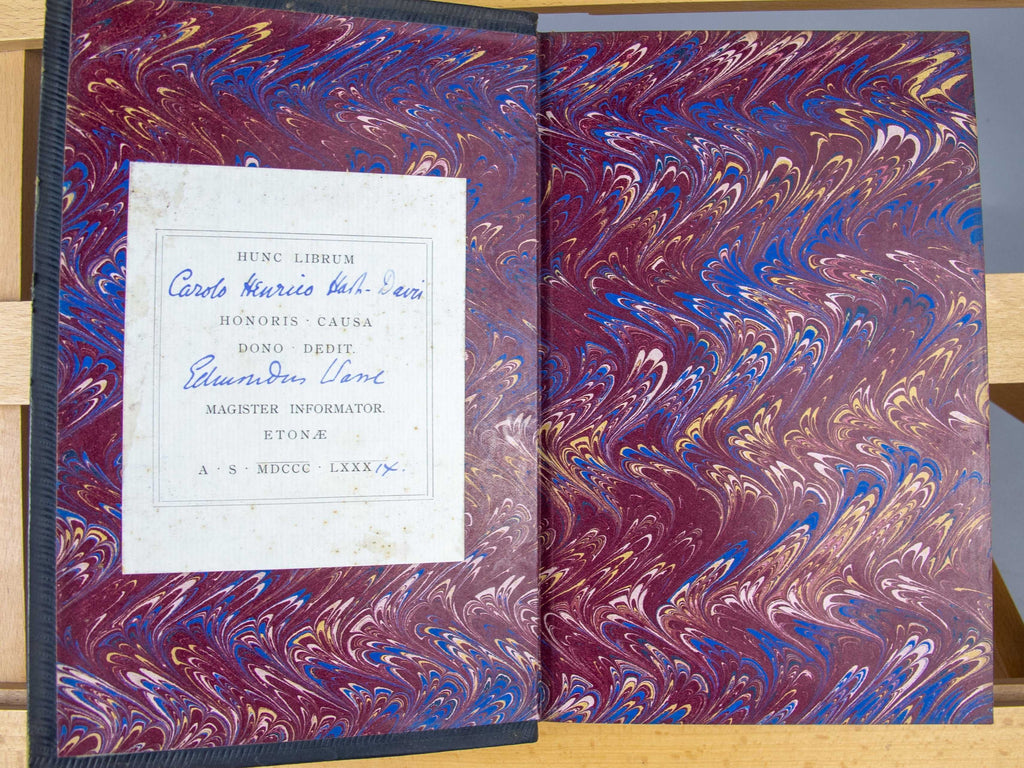 HUNC LIBRUM
Carolo Henrico Hart-Davis
HONORIS · CAUSA
DONO · DEDIT.
Edmundus Warre
MAGISTER INFORMATOR.
ETONÆ
A · S · MDCCC · LXXXIX.